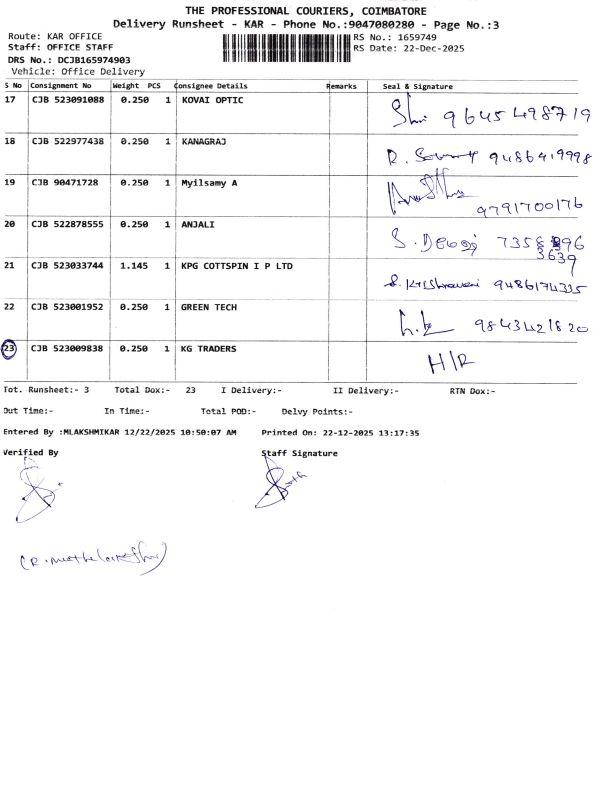 THE PROFESSIONAL COURIERS, COIMBATORE
Delivery Runsheet - KAR - Phone No.:9047080280 - Page No.:3
Route: KAR OFFICE
RS No.: 1659749
Staff: OFFICE STAFF
RS Date: 22-Dec-2025
DRS No.: DCJB165974903
Vehicle: Office Delivery
S No Consignment No Weight PCS Consignee Details Remarks Seal & Signature
17 CJB 523091088 0.250 1 KOVAI OPTIC 9645498719
18 CJB 522977438 0.250 1 KANAGRAJ 9486419998
19 CJB 90471728 0.250 1 Myilsamy A 9791700176
20 CJB 522878555 0.250 1 ANJALI
21 CJB 523033744 1.145 1 KPG COTTSPIN I P LTD 9486174335
22 CJB 523001952 0.250 1 GREEN TECH 9843421820
23 CJB 523009838 0.250 1 KG TRADERS H/R
Tot. Runsheet:- 3 Total Dox:- 23 I Delivery:- II Delivery:- RTN Dox:-
Out Time:- In Time:- Total POD:- Delvy Points:-
Entered By :MLAKSHMIKAR 12/22/2025 10:50:07 AM Printed On: 22-12-2025 13:17:35
Verified By Staff Signature